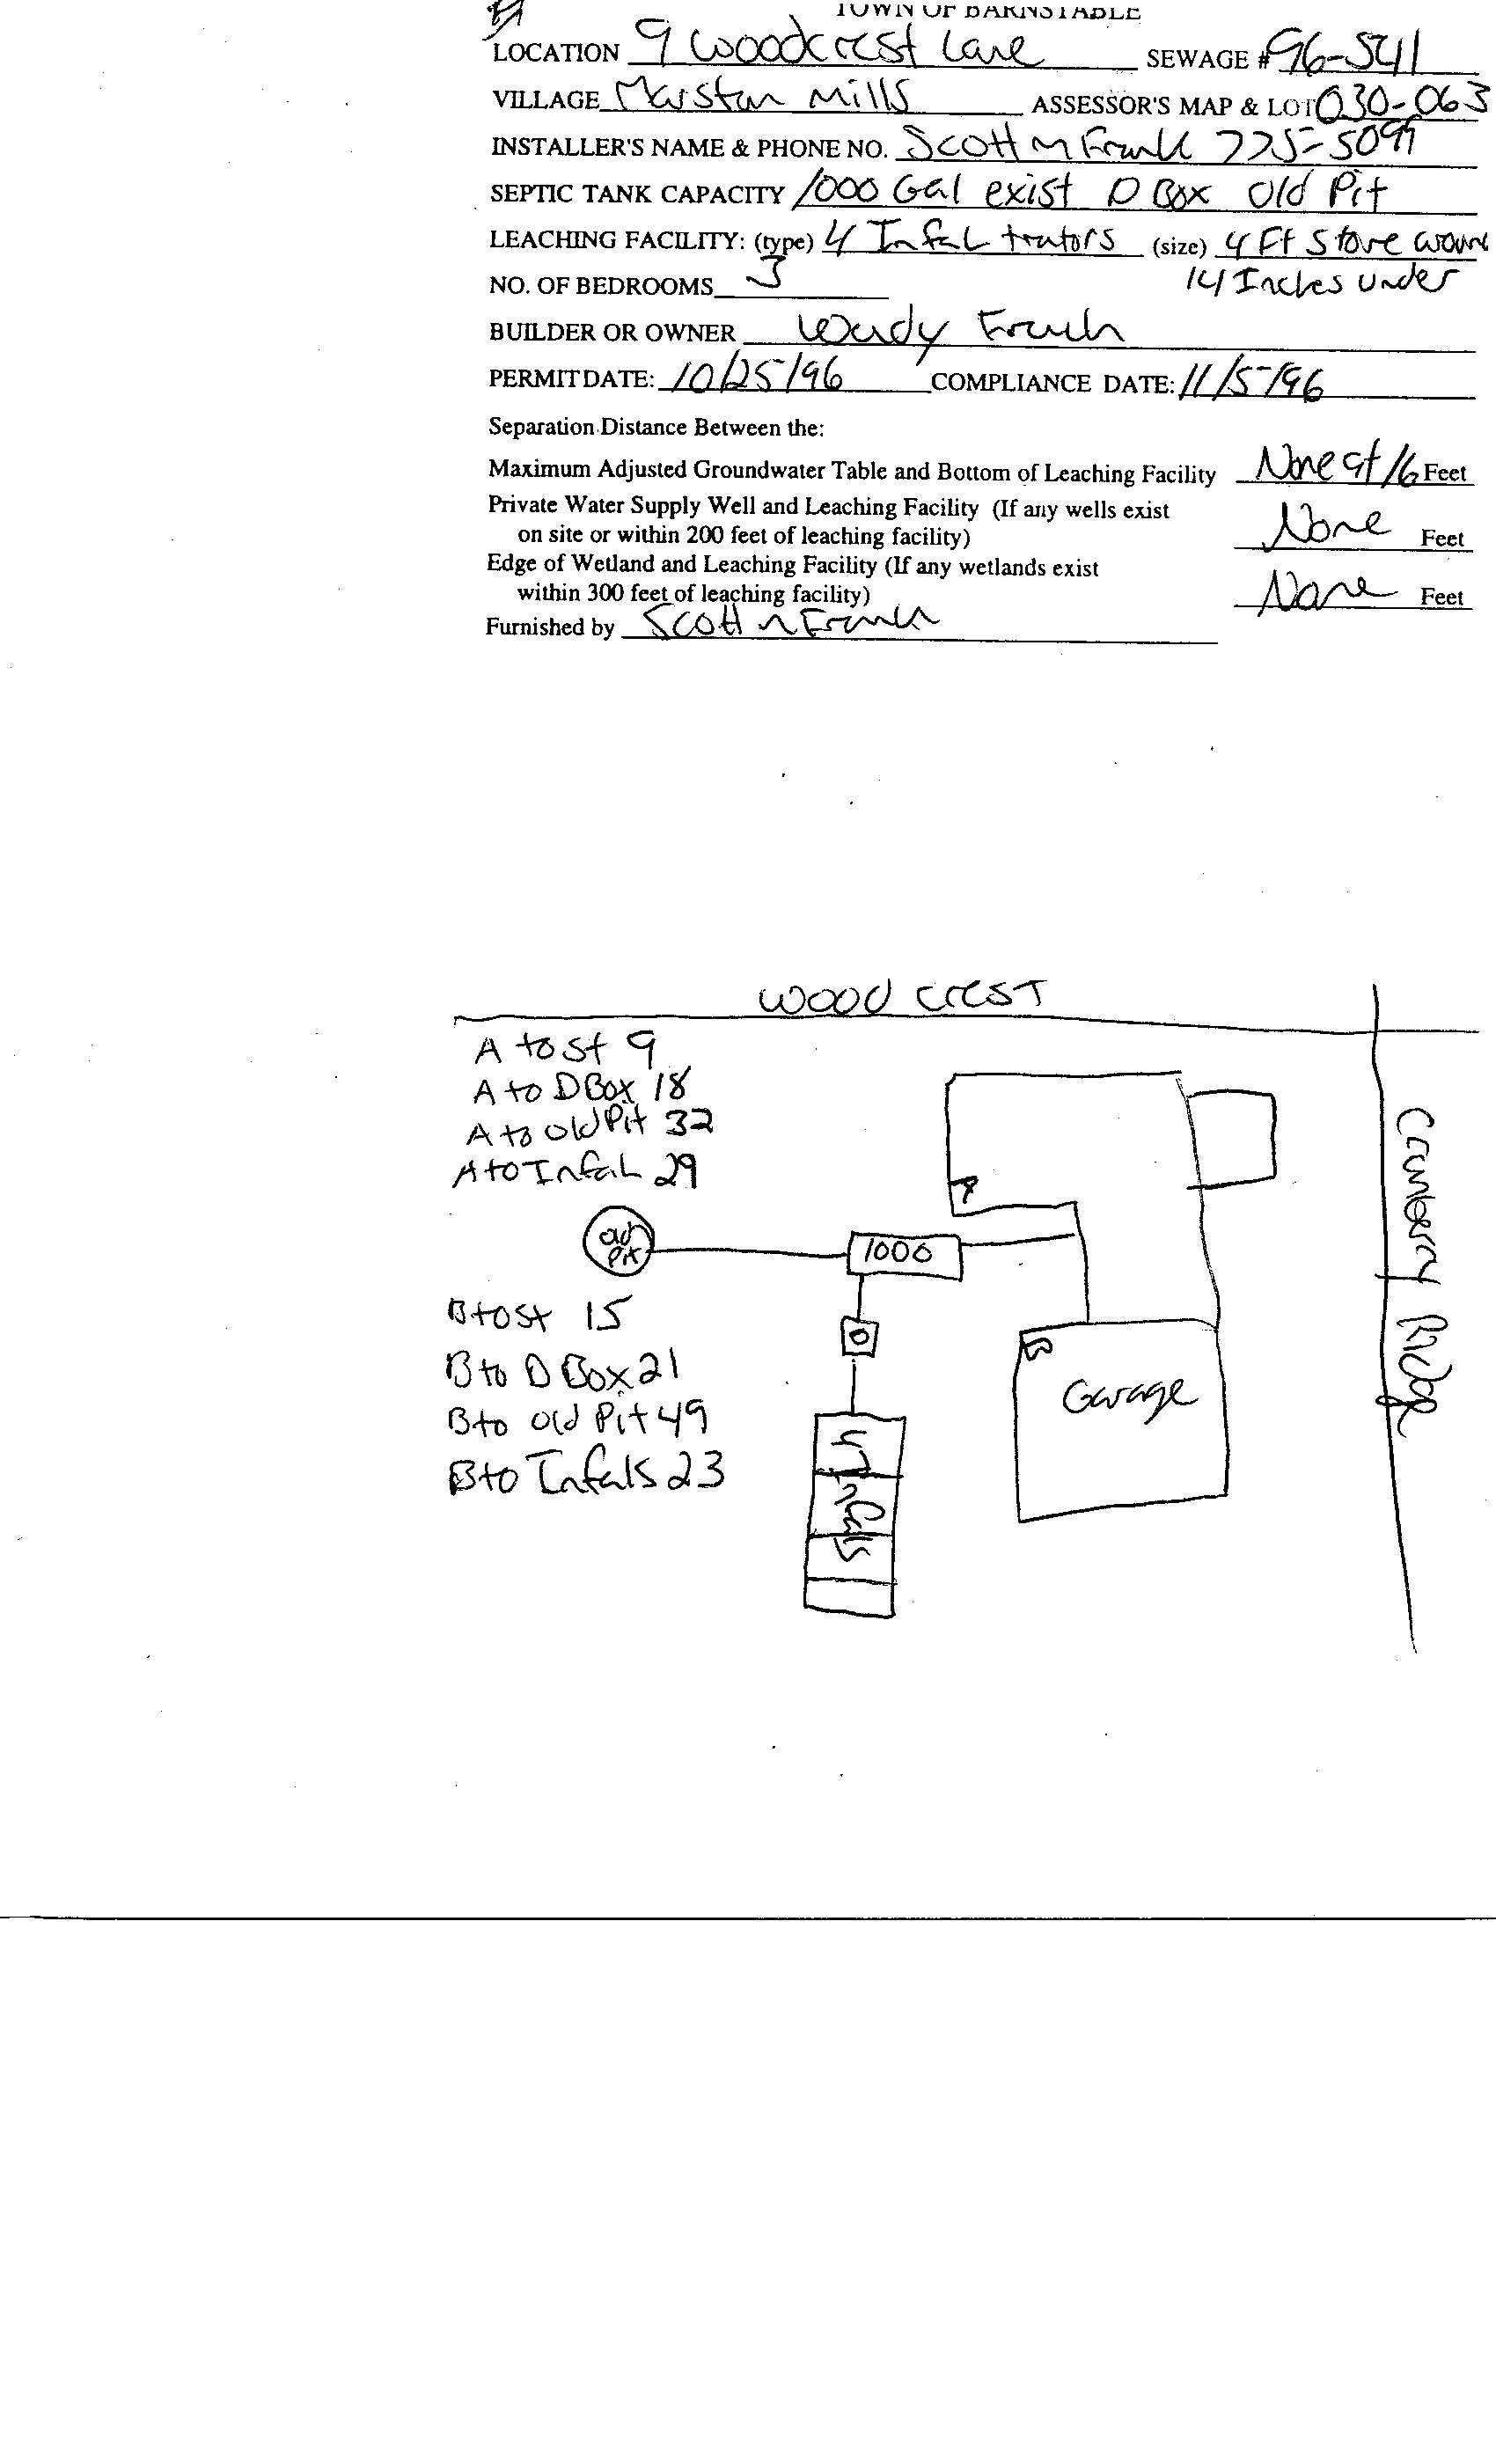 TOWN OF BARNSTABLE
LOCATION 9 Woodcrest Lane SEWAGE # 96-541
VILLAGE Marston Mills ASSESSOR'S MAP & LOT 030-063
INSTALLER'S NAME & PHONE NO. Scott M Frank 775-5099
SEPTIC TANK CAPACITY 1000 Gal exist D Box Old Pit
LEACHING FACILITY: (type) 4 Infiltrators (size) 4 Ft Stone
NO. OF BEDROOMS 3 14 Inches Under
BUILDER OR OWNER
PERMIT DATE: 10/25/96 COMPLIANCE DATE: 11/5/96
Separation Distance Between the:
Maximum Adjusted Groundwater Table and Bottom of Leaching Facility None at 16 Feet
Private Water Supply Well and Leaching Facility (If any wells exist
on site or within 200 feet of leaching facility) None Feet
Edge of Wetland and Leaching Facility (If any wetlands exist
within 300 feet of leaching facility) None Feet
Furnished by Scott M Frank
WOOD CREST
A to St 9
A to D Box 18
A to Old Pit 32
A to Infal 29
A
Old
Pit
1000
B to St 15
B to D Box 21
B to Old Pit 49
B to Infals 23
D
B
Garage
Infals
Cranberry Ridge